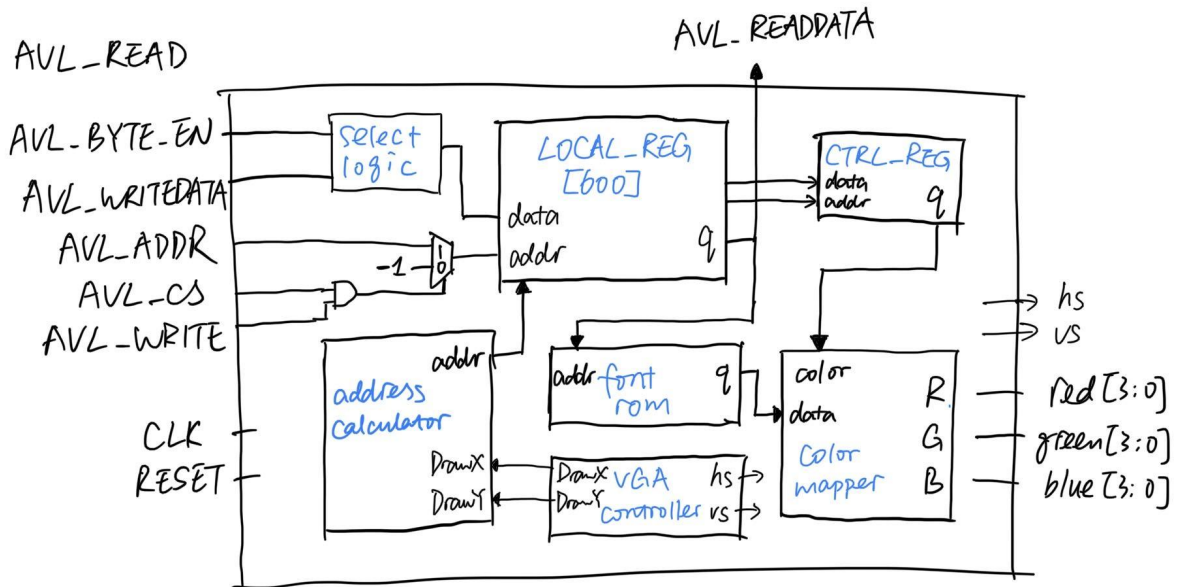 AVL_READDATA
AVL_READ
AVL_BYTE_EN
AVL_WRITEDATA
AVL_ADDR
AVL_CS
AVL_WRITE
CLK
RESET
select
logic
-1
1
0
LOCAL_REG
[600]
data
addr
q
CTRL_REG
data
addr
q
address
calculator
addr
DrawX
DrawY
addr font
rom
q
DrawX VGA
DrawY controller
hs
vs
color
data
color
mapper
R
G
B
hs
vs
red[3:0]
green[3:0]
blue[3:0]